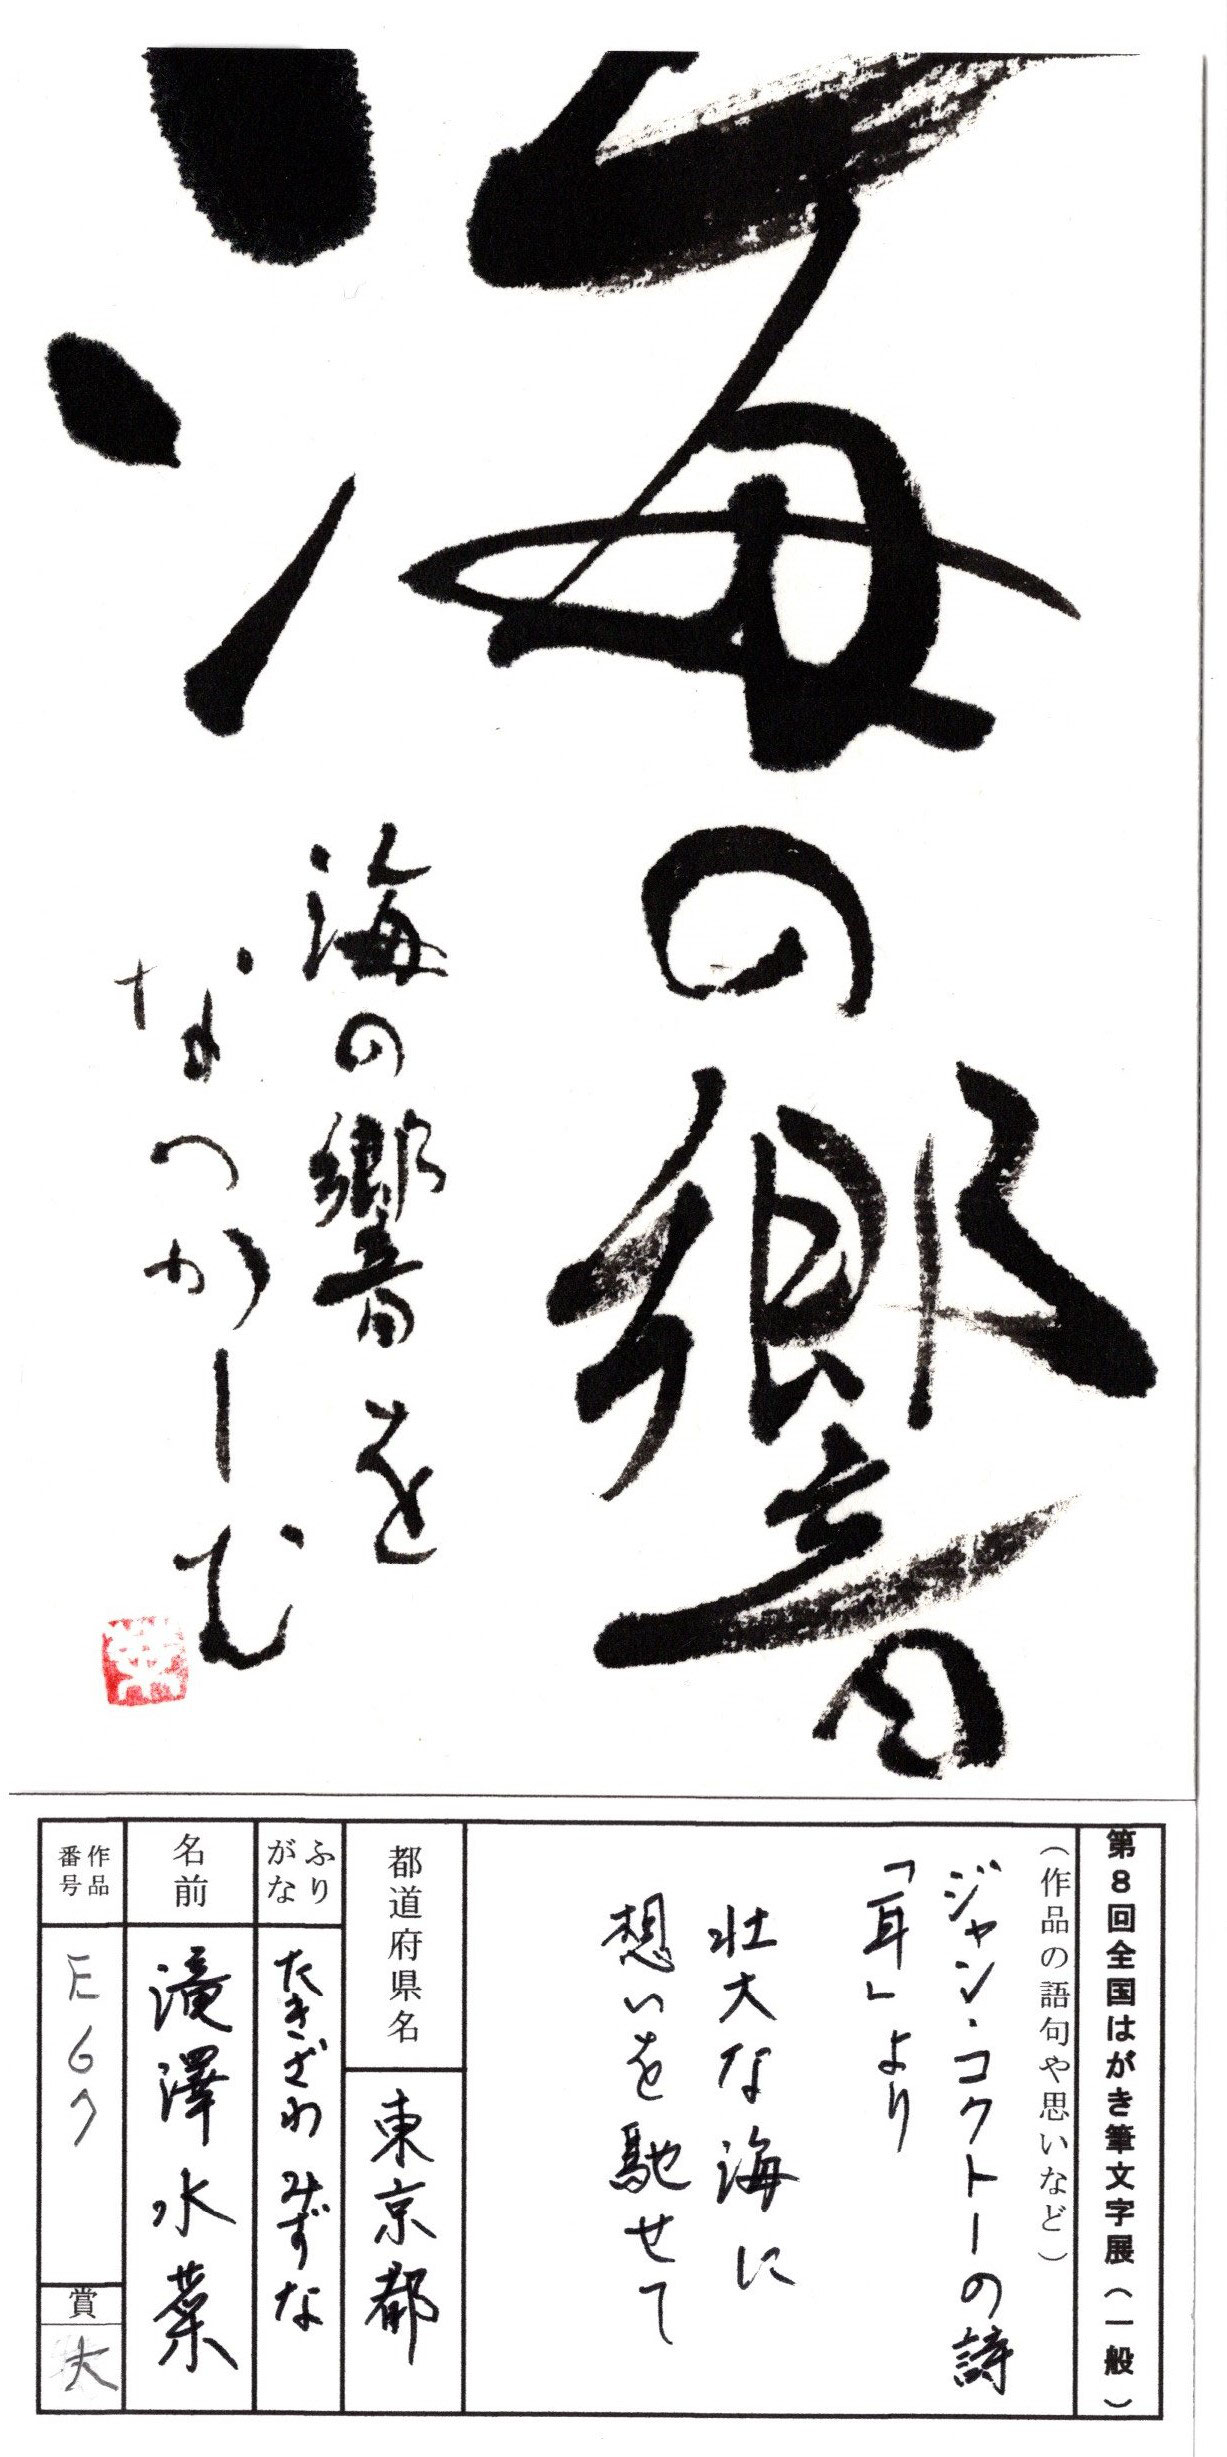 海の響
海の響を
なつかしむ
第8回全国はがき筆文字展(一般)
(作品の語句や思いなど)
ジャン・コクトーの詩
「耳」より
壮大な海に
想いを馳せて
都道府県名
東京都
ふりがな
たきざわ みずな
名前
滝澤水菜
作品番号
E67
賞
大